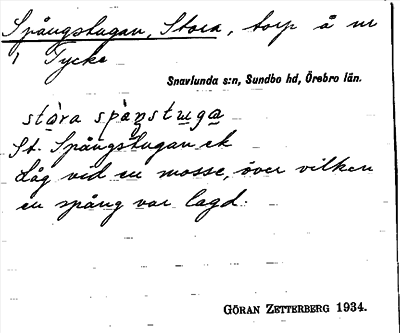 Spångstugan, Stora, torp å nr
1 Tycke
Snavlunda s:n, Sundbo hd, Örebro län.
stòra spàŋstuga
St. Spångstugan ek
Låg vid en mosse, över vilken
en spång var lagd.
GÖRAN ZETTERBERG 1934.